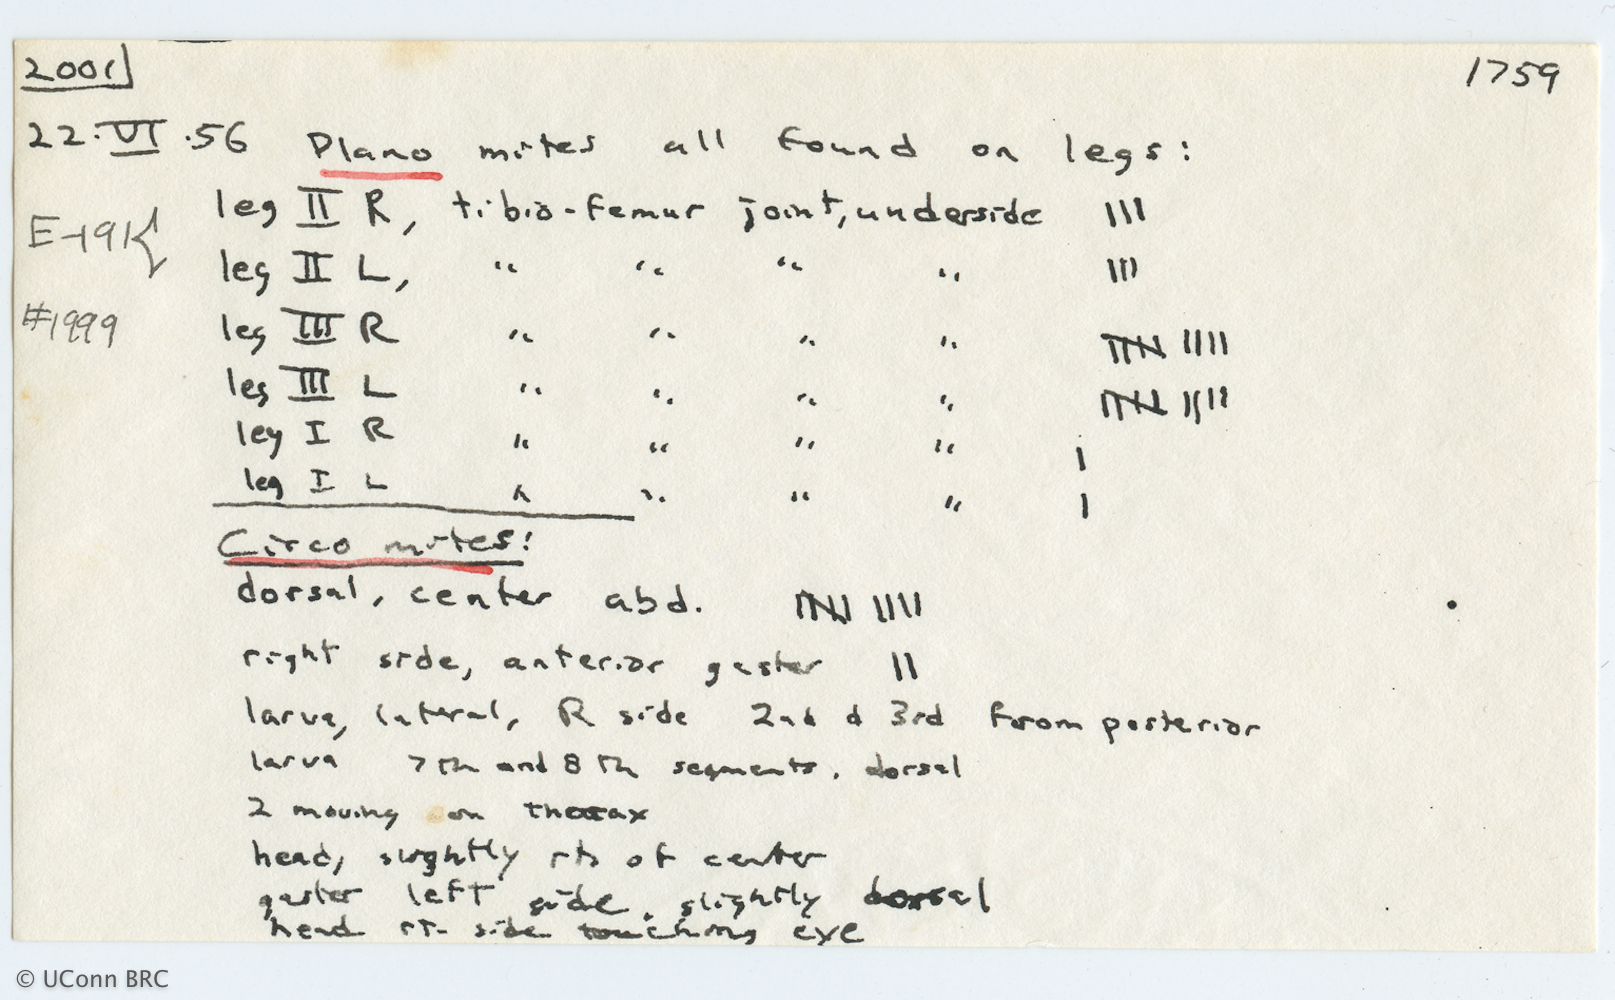 2001 1759
22.VI.56 Plano mites all found on legs:
leg II R, tibio-femur joint, underside |||
E-191{ leg II L, " " " " |||
#1999 leg III R " " " " 卌 ||||
leg III L " " " " 卌 ||||
leg I R " " " " |
leg I L " " " " |
Circo mites:
dorsal, center abd. 卌 ||||
right side, anterior gaster ||
larva, lateral, R side 2nd & 3rd from posterior
larva 7th and 8th segments, dorsal
2 moving on thorax
head, slightly rt of center
gaster left side, slightly dorsal
head rt side touching eye
© UConn BRC